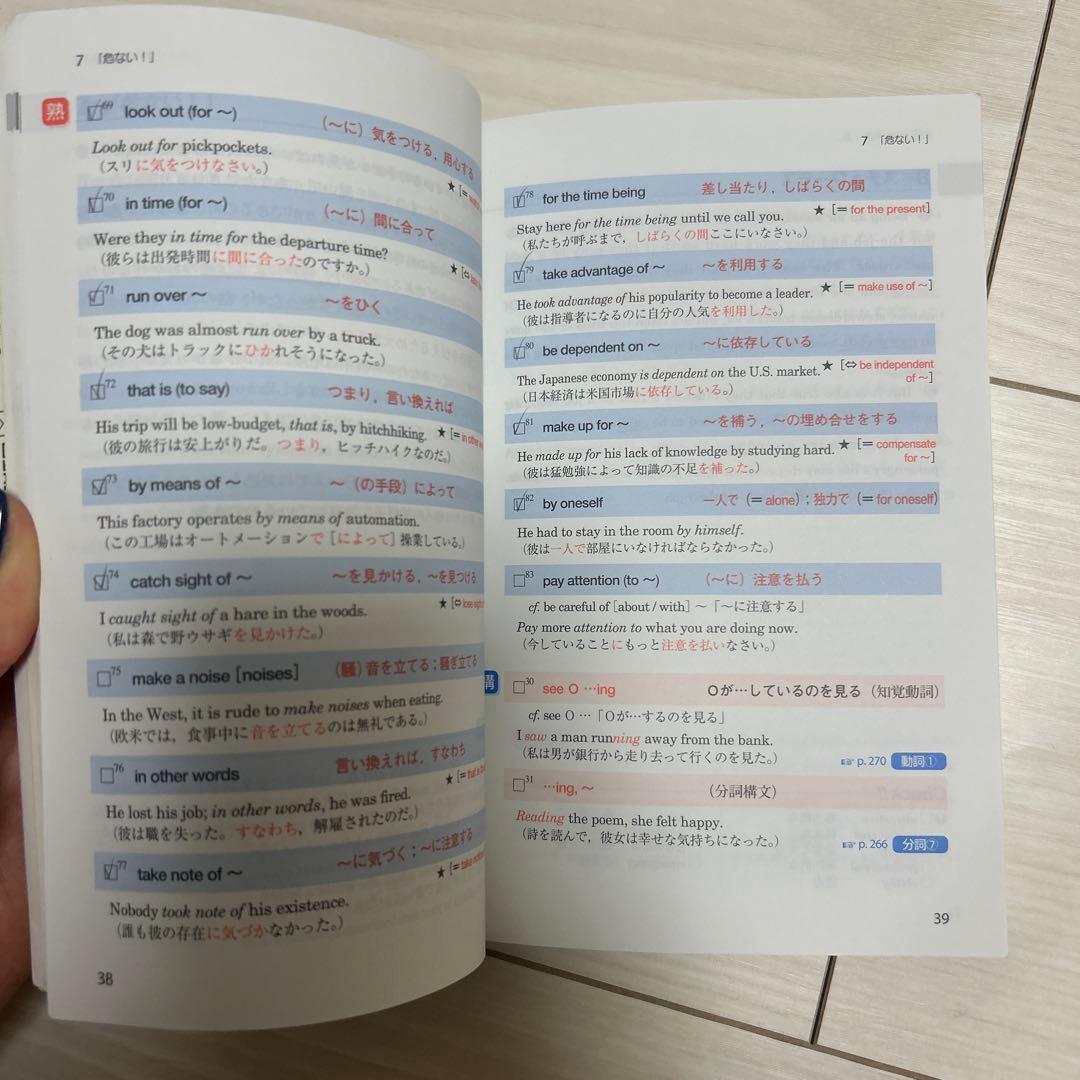 7 「危ない！」
熟
69 look out (for ～) （～に）気をつける，用心する
Look out for pickpockets.
（スリに気をつけなさい。） ★ [=
70 in time (for ～) （～に）間に合って
Were they in time for the departure time?
（彼らは出発時間に間に合ったのですか。） ★ [⇔
71 run over ～ ～をひく
The dog was almost run over by a truck.
（その犬はトラックにひかれそうになった。）
72 that is (to say) つまり，言い換えれば
His trip will be low-budget, that is, by hitchhiking. ★ [= in other
（彼の旅行は安上がりだ。つまり，ヒッチハイクなのだ。）
73 by means of ～ ～（の手段）によって
This factory operates by means of automation.
（この工場はオートメーションで［によって］操業している。）
74 catch sight of ～ ～を見かける，～を見つける
I caught sight of a hare in the woods. ★ [⇔ lose sight
（私は森で野ウサギを見かけた。）
75 make a noise [noises] （騒）音を立てる；騒ぎ立てる
In the West, it is rude to make noises when eating.
（欧米では，食事中に音を立てるのは無礼である。）
76 in other words 言い換えれば，すなわち
He lost his job; in other words, he was fired. ★ [= that is
（彼は職を失った。すなわち，解雇されたのだ。）
77 take note of ～ ～に気づく；～に注意する
Nobody took note of his existence. ★ [= take
（誰も彼の存在に気づかなかった。）
38
7 「危ない！」
78 for the time being 差し当たり，しばらくの間
Stay here for the time being until we call you. ★ [= for the present]
（私たちが呼ぶまで，しばらくの間ここにいなさい。）
79 take advantage of ～ ～を利用する
He took advantage of his popularity to become a leader. ★ [= make use of ～]
（彼は指導者になるのに自分の人気を利用した。）
80 be dependent on ～ ～に依存している
The Japanese economy is dependent on the U.S. market. ★ [⇔ be independent
（日本経済は米国市場に依存している。） of ～]
81 make up for ～ ～を補う，～の埋め合せをする
He made up for his lack of knowledge by studying hard. ★ [= compensate
（彼は猛勉強によって知識の不足を補った。） for ～]
82 by oneself 一人で（= alone）；独力で（= for oneself）
He had to stay in the room by himself.
（彼は一人で部屋にいなければならなかった。）
83 pay attention (to ～) （～に）注意を払う
cf. be careful of [about / with] ～「～に注意する」
Pay more attention to what you are doing now.
（今していることにもっと注意を払いなさい。）
構
30 see O …ing Oが…しているのを見る（知覚動詞）
cf. see O …「Oが…するのを見る」
I saw a man running away from the bank.
（私は男が銀行から走り去って行くのを見た。） ☞ p. 270 動詞①
31 …ing, ～ （分詞構文）
Reading the poem, she felt happy.
（詩を読んで，彼女は幸せな気持ちになった。） ☞ p. 266 分詞⑦
39